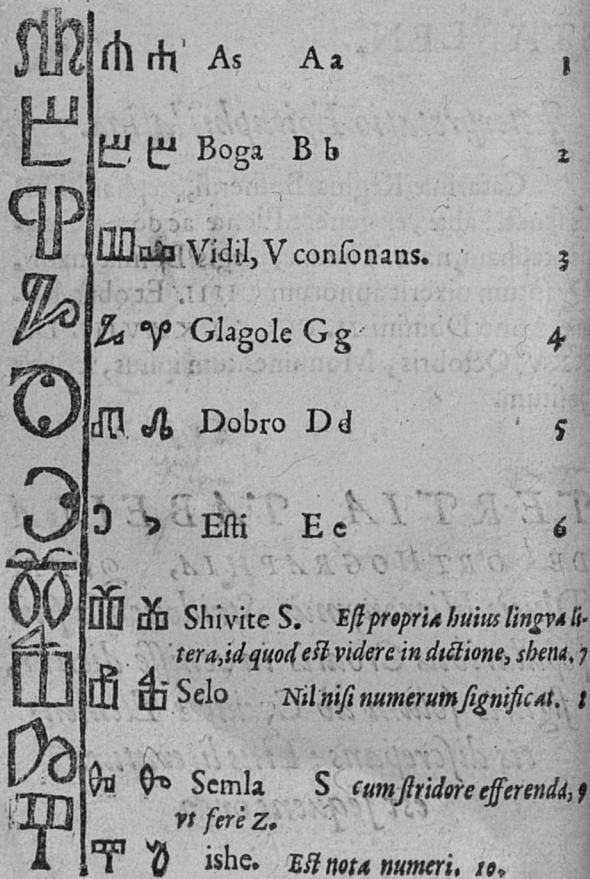 Ⰰ ⰰ ⰰ As A a 1
Ⰱ ⰱ ⰱ Boga B b 2
Ⰲ ⰲ ⰲ Vidil, V conſonans. 3
Ⰳ ⰳ ⰳ Glagole G g 4
Ⰴ ⰴ ⰴ Dobro D d 5
Ⰵ ⰵ ⰵ Eſti E e 6
Ⰶ ⰶ ⰶ Shivite S. Eſt propria huius lingva li-
tera, id quod eſt videre in dictione, shena. 7
Ⰷ ⰷ ⰷ Selo Nil niſi numerum ſignificat. 8
Ⰸ ⰸ ⰸ Semla S cum ſtridore efferenda, 9
vt ferè z.
Ⰹ ⰹ ⰹ ishe. Eſt nota numeri. 10.